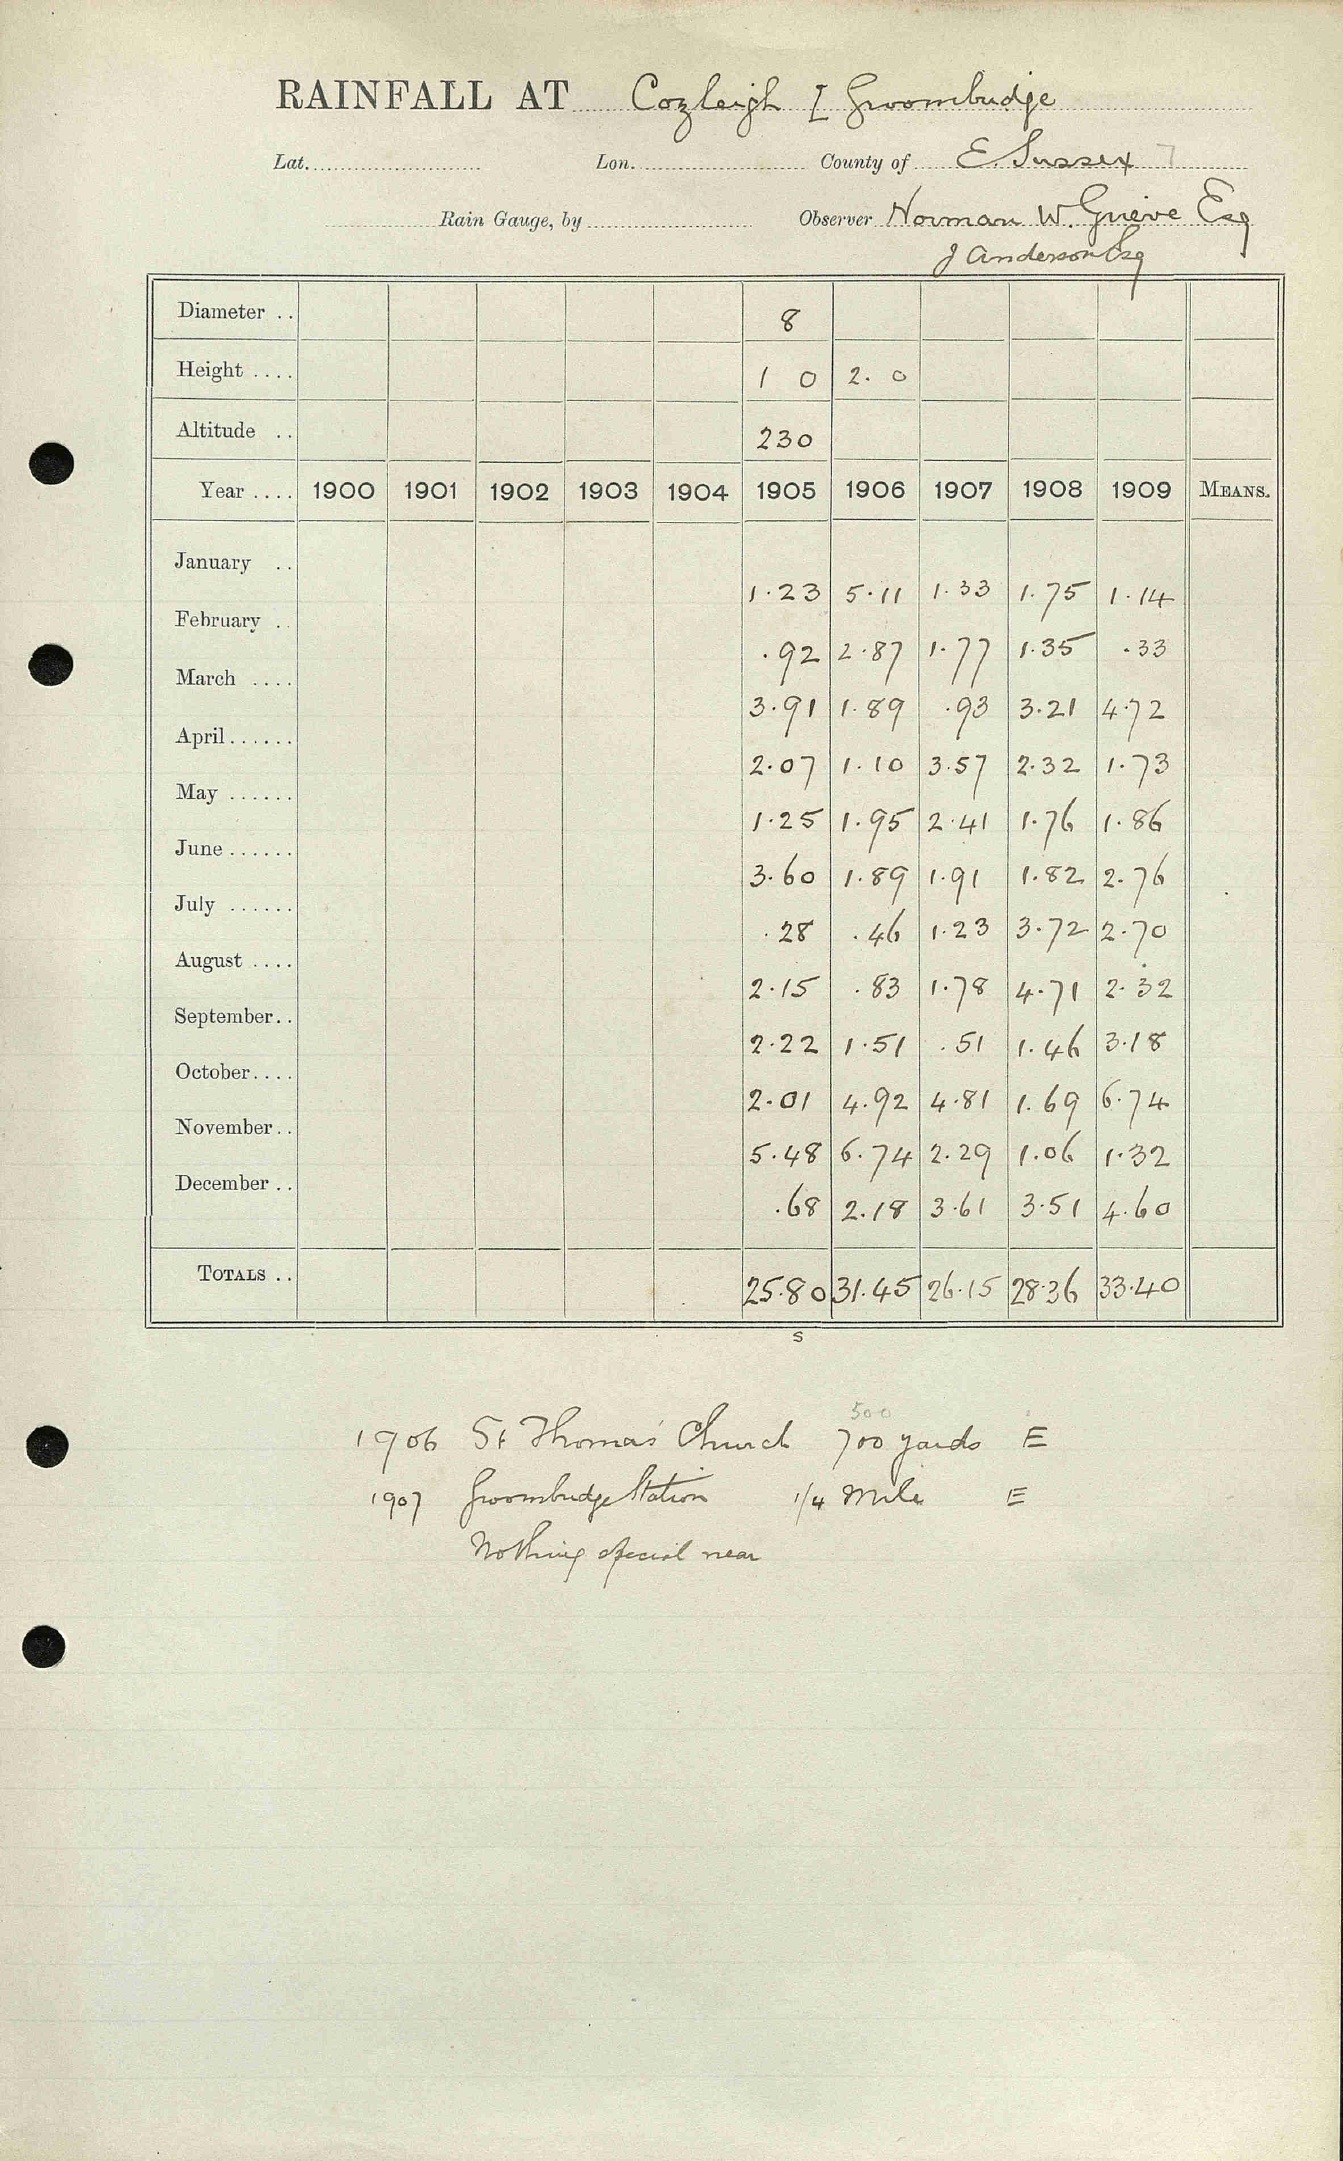 RAINFALL AT Cozleigh [ Groombridge
Lat. Lon. County of E. Sussex 7
Rain Gauge, by Observer Norman W. Grieve Esq
J Anderson Esq
Diameter .. 8
Height .... 1 0 2. 0
Altitude .. 230
Year .... 1900 1901 1902 1903 1904 1905 1906 1907 1908 1909 MEANS.
January .. 1.23 5.11 1.33 1.75 1.14
February .. .92 2.87 1.77 1.35 .33
March .... 3.91 1.89 .93 3.21 4.72
April ...... 2.07 1.10 3.57 2.32 1.73
May ...... 1.25 1.95 2.41 1.76 1.86
June ...... 3.60 1.89 1.91 1.82 2.76
July ...... .28 .46 1.23 3.72 2.70
August .... 2.15 .83 1.78 4.71 2.32
September .. 2.22 1.51 .51 1.46 3.18
October .... 2.01 4.92 4.81 1.69 6.74
November .. 5.48 6.74 2.29 1.06 1.32
December .. .68 2.18 3.61 3.51 4.60
TOTALS .. 25.80 31.45 26.15 28.36 33.40
s
500
1906 St Thomas' Church 700 yards E
1907 Groombridge Station 1/4 Mile E
Nothing special near